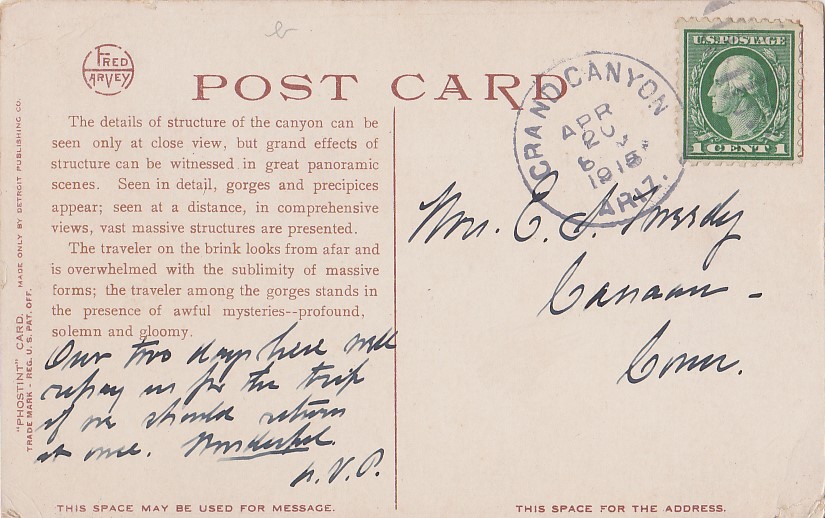 FRED
HARVEY
POST CARD
The details of structure of the canyon can be
seen only at close view, but grand effects of
structure can be witnessed in great panoramic
scenes. Seen in detail, gorges and precipices
appear; seen at a distance, in comprehensive
views, vast massive structures are presented.
The traveler on the brink looks from afar and
is overwhelmed with the sublimity of massive
forms; the traveler among the gorges stands in
the presence of awful mysteries--profound,
solemn and gloomy.
Our two days here will
repay us for the trip
if we should return
at once. Wonderful.
V. P.
THIS SPACE MAY BE USED FOR MESSAGE.
"PHOSTINT" CARD. MADE ONLY BY DETROIT PUBLISHING CO.
TRADE MARK - REG. U.S. PAT. OFF.
GRAND CANYON
APR
1915
ARIZ.
U.S. POSTAGE
1 CENT 1
C. S.
Canaan -
Conn.
THIS SPACE FOR THE ADDRESS.